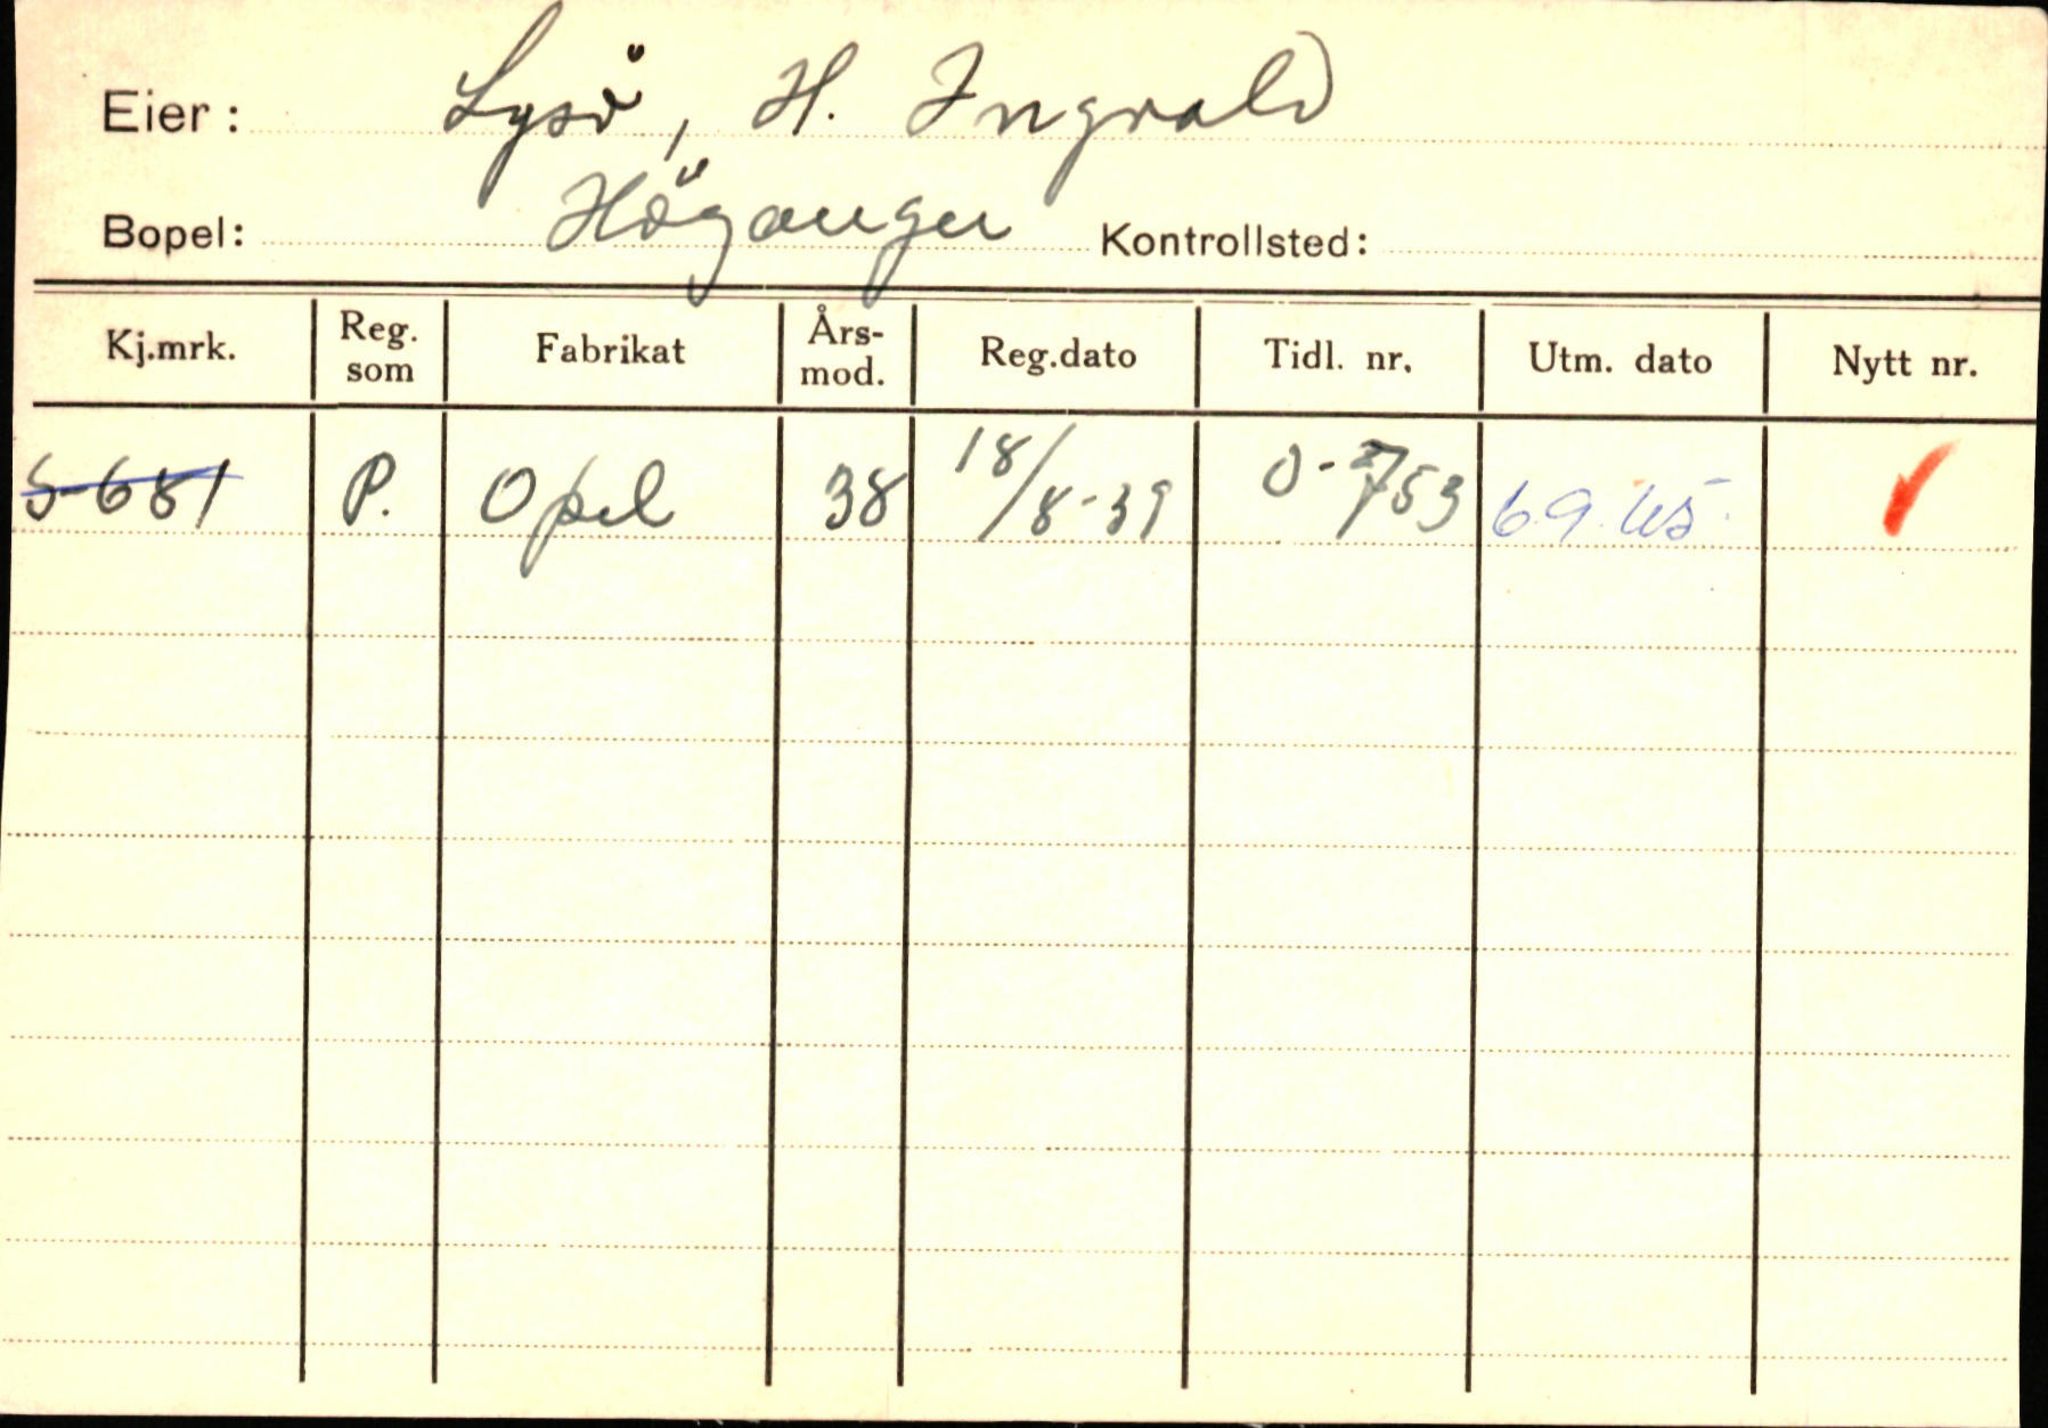 Eier: Lysö, H. Ingvald
Bopel: Höganger Kontrollsted:
Kj.mrk. Reg. som Fabrikat Års-mod. Reg.dato Tidl. nr. Utm. dato Nytt nr.
S-681 P. Opel 38 18/8-39 O-753 6.9.45. ✓